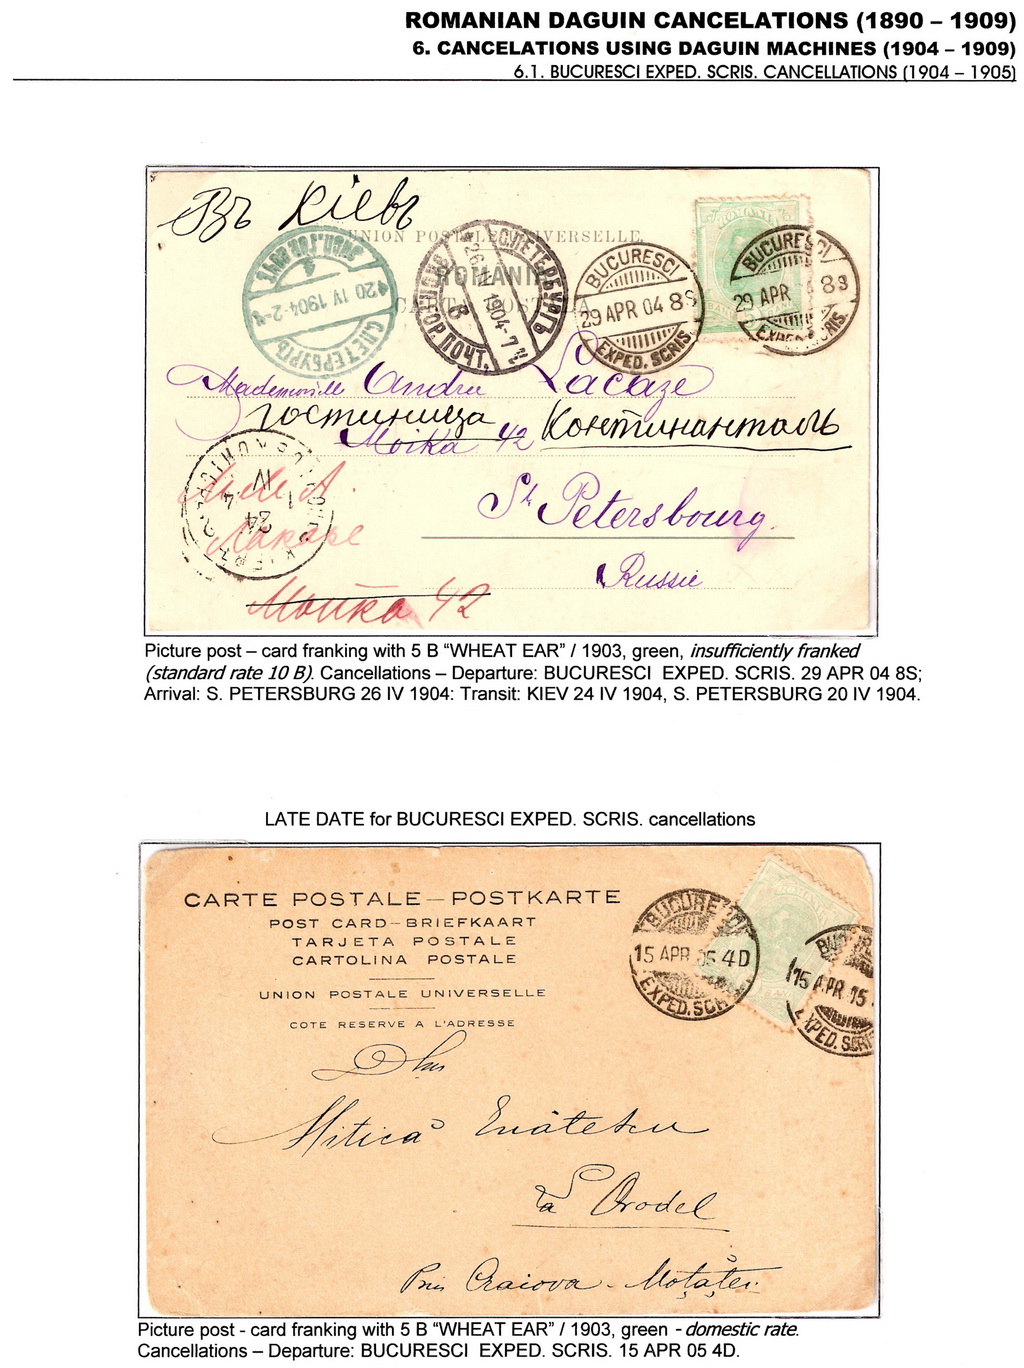 ROMANIAN DAGUIN CANCELATIONS (1890 – 1909)
6. CANCELATIONS USING DAGUIN MACHINES (1904 – 1909)
6.1. BUCURESCI EXPED. SCRIS. CANCELLATIONS (1904 – 1905)
Въ Кіевъ
UNION POSTALE UNIVERSELLE
ROMANIA
CARTA POSTALA
С.ПЕТЕРБУРГЪ
20 IV 1904
С.ПЕТЕРБУРГЪ
26 IV 1904-7
ГОР. ПОЧТ.
BUCURESCI
29 APR 04 8S
EXPED. SCRIS
BUCURESCI
29 APR 8S
EXPED. SCRIS.
Mademoiselle Andrée Lacaze
гостиница Континанталь
Moïka 42
St Petersbourg
Russie
24
IV
4
М-lle А.
Лаказе
Мойка 42
Picture post – card franking with 5 B “WHEAT EAR” / 1903, green, insufficiently franked
(standard rate 10 B). Cancellations – Departure: BUCURESCI EXPED. SCRIS. 29 APR 04 8S;
Arrival: S. PETERSBURG 26 IV 1904: Transit: KIEV 24 IV 1904, S. PETERSBURG 20 IV 1904.
LATE DATE for BUCURESCI EXPED. SCRIS. cancellations
CARTE POSTALE — POSTKARTE
POST CARD – BRIEFKAART
TARJETA POSTALE
CARTOLINA POSTALE
UNION POSTALE UNIVERSELLE
COTE RESERVE A L'ADRESSE
BUCURESCI
15 APR 05 4D
EXPED. SCR
15 APR 05
EXPED. SCRI
Mitică Enătescu
La Orodel
Prin Craiova - Moțăței
Picture post - card franking with 5 B “WHEAT EAR” / 1903, green - domestic rate.
Cancellations – Departure: BUCURESCI EXPED. SCRIS. 15 APR 05 4D.